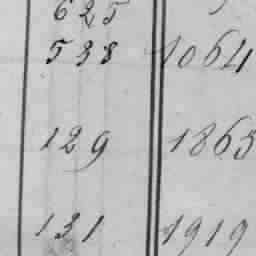 625
538 1064
129 1863
131 1919